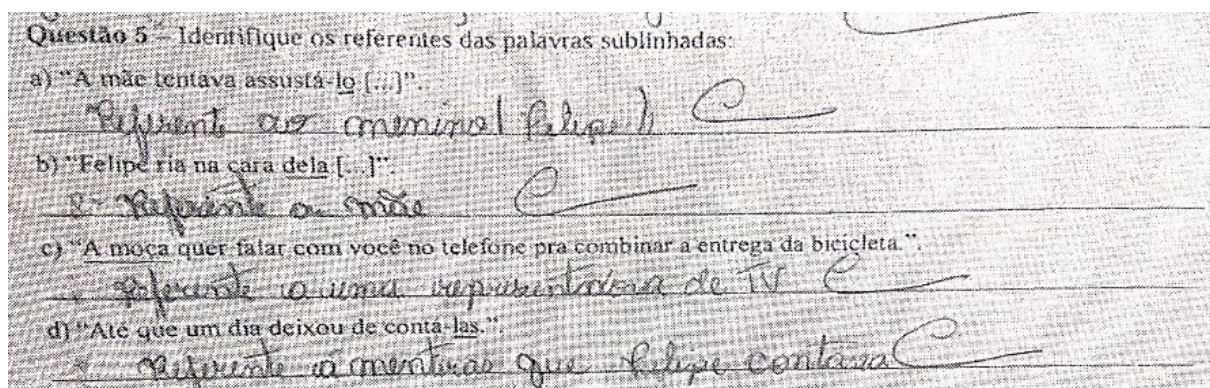 Questão 5 – Identifique os referentes das palavras sublinhadas:
a) “A mãe tentava assustá-lo [...]”.
Referente ao menino (Felipe)
b) “Felipe ria na cara dela [...]”.
R- Referente a mãe
c) “A moça quer falar com você no telefone pra combinar a entrega da bicicleta.”.
Referente a uma de TV
d) “Até que um dia deixou de contá-las.”.
Referente a mentiras que Felipe contava